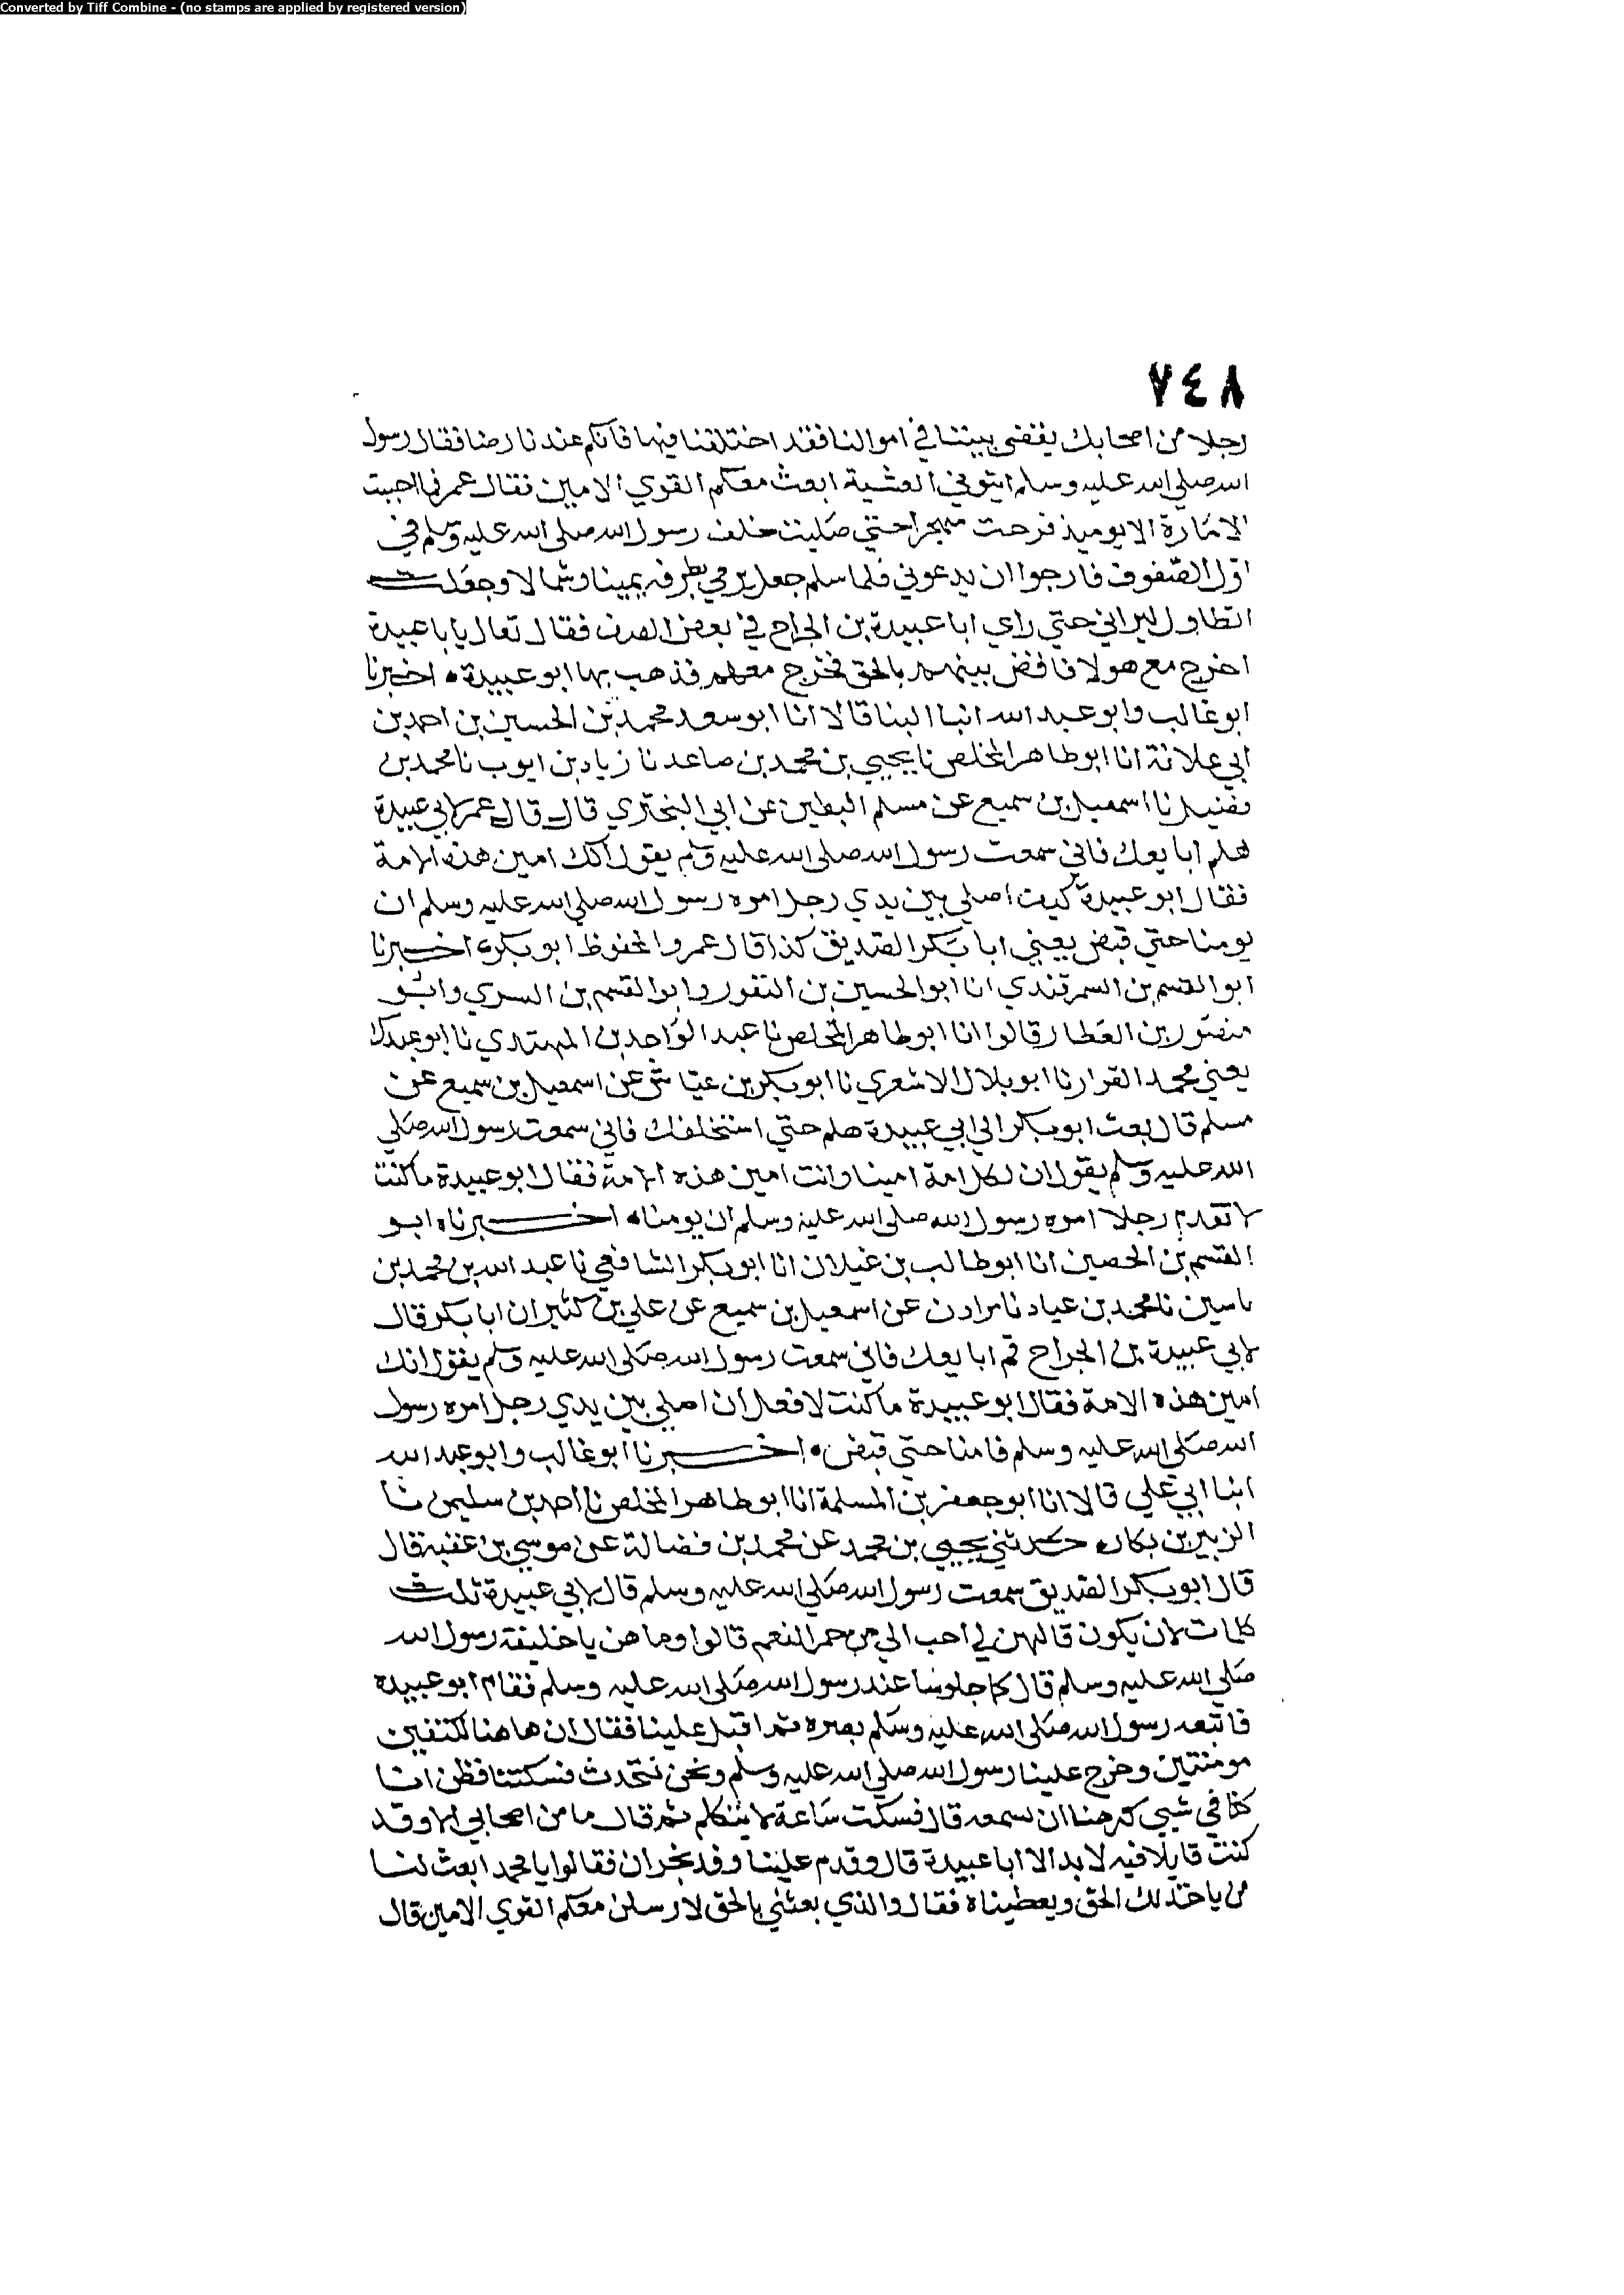 Converted by Tiff Combine - (no stamps are applied by registered version)
٧٤٨
رجلا من اصحابك يقضى بيننا في اموالنا فقد اختلفنا فيها فانكم عندنا رضا فقال رسول
الله صلي الله عليه وسلم ايتوني العشية ابعث معكم القوي الامين فقال عمر فما احببت
الامارة الا يوميذ فرحت مهجرا حتي صليت خلف رسول الله صلى الله عليه وسلم في
اول الصفوف فارجوا ان يدعوني فلما سلم جعل يرمي بطرفه يمينا وشمالا وجعلت
اتطاول ليراني حتي راي ابا عبيدة بن الجراح في بعض الصف فقال تعال يابا عبيدة
اخرج مع هولا فاقض بينهم بالحق فخرج معهم فذهب بها ابو عبيدة • اخبرنا
ابو غالب وابو عبد الله انبا البنا قالا انا ابو سعد محمد بن الحسين بن احمد بن
ابي علانة انا ابو طاهر المخلص نا يحيي بن محمد بن صاعد نا زياد بن ايوب نا محمد بن
فضيل نا اسمعيل بن سميع عن مسلم البطين عن ابي البختري قال قال عمر لابي عبيدة
هلم ابايعك فاني سمعت رسول الله صلى الله عليه وسلم يقول انك امين هذه الامة
فقال ابو عبيدة كيف اصلي بين يدي رجل امره رسول الله صلي الله عليه وسلم ان
يومنا حتي قبض يعني ابا بكر الصديق كذا قال عمر والمحفوظ ابو بكر ه اخبرنا
ابو القسم بن السمرقندي انا ابو الحسين بن النقور وابو القسم بن السري وابو
منصور بن العطار قالوا انا ابو طاهر المخلص نا عبد الواحد بن المهتدي نا ابو عبد الله
يعني محمد القرار نا ابو بلال الاشعري نا ابو بكر بن عياش عن اسمعيل بن سميع عن
مسلم قال بعث ابو بكر الي ابي عبيدة هلم حتي استخلفك فاني سمعت رسول الله صلي
الله عليه وسلم يقول ان لكل امة امينا وانت امين هذه الامة فقال ابو عبيدة ما كنت
لاتقدم رجلا امره رسول الله صلى الله عليه وسلم ان يومنا ه اخبرناه ابو
القسم بن الحصين انا ابو طالب بن غيلان انا ابو بكر الشافعي نا عبد الله بن محمد بن
ياسين نا محمد بن عباد نا مرادن عن اسمعيل بن سميع عن علي بن كثير ان ابا بكر قال
لابي عبيدة بن الجراح قم ابايعك فاني سمعت رسول الله صلى الله عليه وسلم يقول انك
امين هذه الامة فقال ابو عبيدة ما كنت لافعل ان اصلي بين يدي رجل امره رسول
الله صلى الله عليه وسلم فامنا حتي قبض ه اخبرنا ابو غالب وابو عبد الله
ابنا ابي علي قالا انا ابو جعفر بن المسلمة انا ابو طاهر المخلص نا احمد بن سليمن نا
الزبير بن بكار ه حدثني يحيي بن محمد عن محمد بن فضالة عن موسي بن عقبة قال
قال ابو بكر الصديق سمعت رسول الله صلي الله عليه وسلم قال لابي عبيدة ثلث
كلمات لان يكون قالهن لي احب الي من حمر النعم قالوا وما هن يا خليفة رسول الله
صلى الله عليه وسلم قال كنا جلوسا عند رسول الله صلى الله عليه وسلم فقام ابو عبيده
فاتبعه رسول الله صلى الله عليه وسلم بصره ثم اقبل علينا فقال ان هاهنا لكتفين
مومنتين وخرج علينا رسول الله صلي الله عليه وسلم ونحن نتحدث فسكتنا فظن انا
كنا في شيى كرهنا ان نسمعه قال فسكت ساعة لا يتكلم ثم قال ما من اصحابي الا وقد
كنت قايلا فيه لا بد الا ابا عبيدة قال وقدم علينا وفد نجران فقالوا يا محمد ابعث لنا
من ياخذ لك الحق ويعطيناه فقال والذي بعثني بالحق لارسلن معكم القوي الامين قال